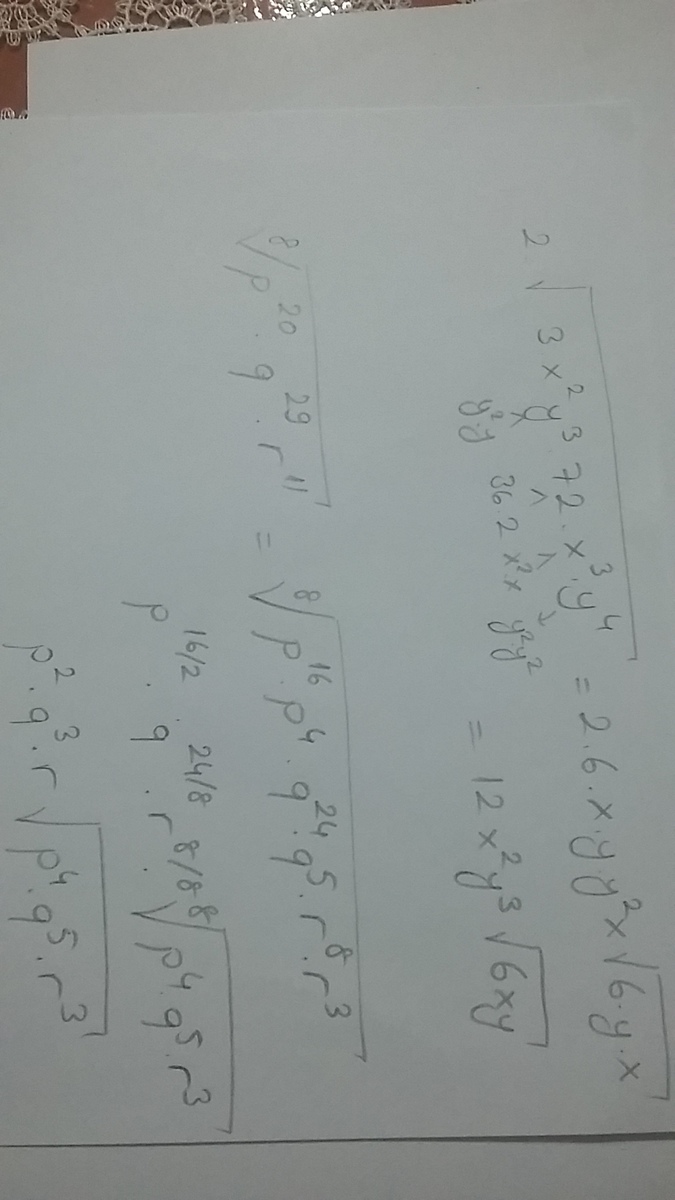 2 √3·x²y³·72·x³·y⁴ = 2·6·x·y·y²x√6·y·x
y²·y 36·2 x²x y²·y² = 12x²y³√6xy
⁸√p²⁰·q²⁹·r¹¹ = ⁸√p¹⁶·p⁴·q²⁴·q⁵·r⁸·r³
p^16/2 · q^24/8 · r^8/8 · ⁸√p⁴·q⁵·r³
p²·q³·r√p⁴·q⁵·r³